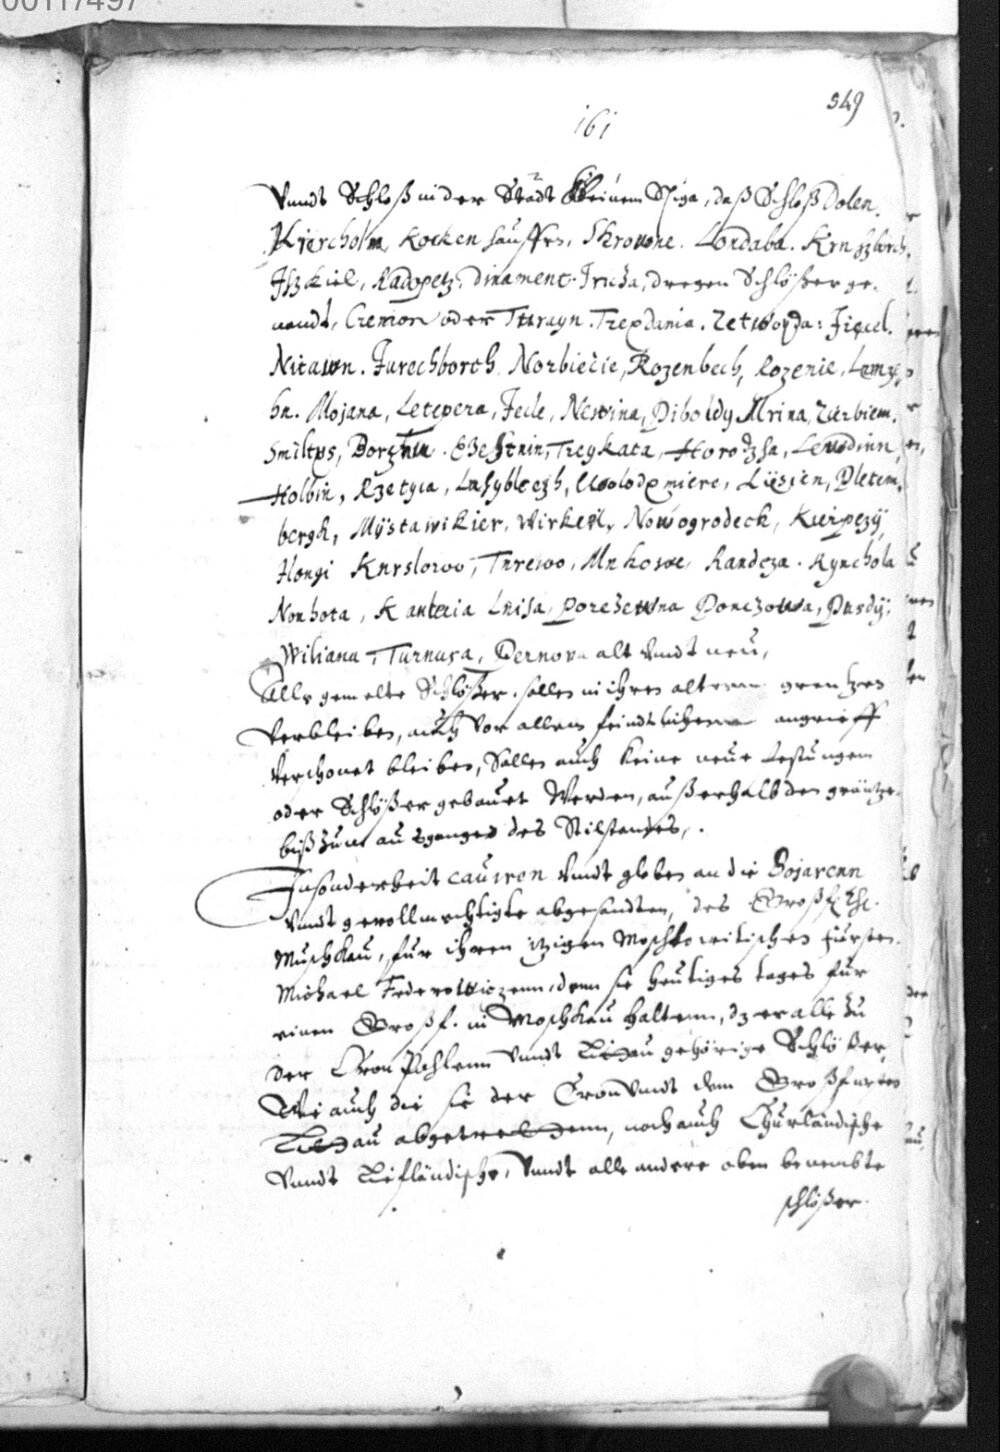 00117497
549
161
Vnndt Schloß in der Stadt Riga, daß Schloß Dolen.
Kiercholm, Kockenhaussen, Skrowne. Londaba. Krnszborch.
Iszkiel, Radopetz, Dinament. Iricza, dregen Schlößer ge-
nandt, Cremon oder Turayn. Trepdania. Zetwoyda: Ziecel.
Nitawn. Jurechborch Norbiecie, Rozenbech, Rozenie, Lemy,
bn. Mojana, Letepera, Fede, Newina, Piboldy Mrina, Zierbiem,
Smiltys, Borztnn. Treykata, Horodzsa, Lewdinn,
Holbin, Rzetyca, Lasyblezh, Woolodomiere, Lüsien, Pletem,
bergk, Mystawikier, Wirkeyl, Nowogrodeck, Kierpezÿ,
Hongi Knrslowo, Tnrewo, Mnkowe, Randcza. Rynchola
Nonhota, Kanteria Lnisa, Porezewna Ponczowa, Pnsdÿ,
Wiliana, Turnusa, Pernova alt vndt neu,
Alle gemelte Schlößer. sollen in ihren altenn grentzen
verbleiben, auch vor allem feindtlichenn angrieff
verschonet bleiben, Sollen auch keine neue Festungen
oder Schlößer gebauet Werden, außerhalb den gräntze,
biß zum ausgange des Stilstandes,.
Insonderheit cauiren vnndt globen an die Bojarenn
vnndt gevollmechtigte abgesandten, des Großf.
Muschkau, für ihren itzigen Moschkowitischen fürsten
Michael Federowiczenn, denn sie heutiges tages für
einen Großf. in Moschkau haltenn, dz er alle zu
der Cron Pohlenn vnndt Littau gehörige Schlößer,
Wie auch die sie der Cron vnndt dem Großfürsten
Littau abgetrettenn, noch auch Churländische
vnndt Lifländische, vnndt alle andere oben benembte
schlößer.